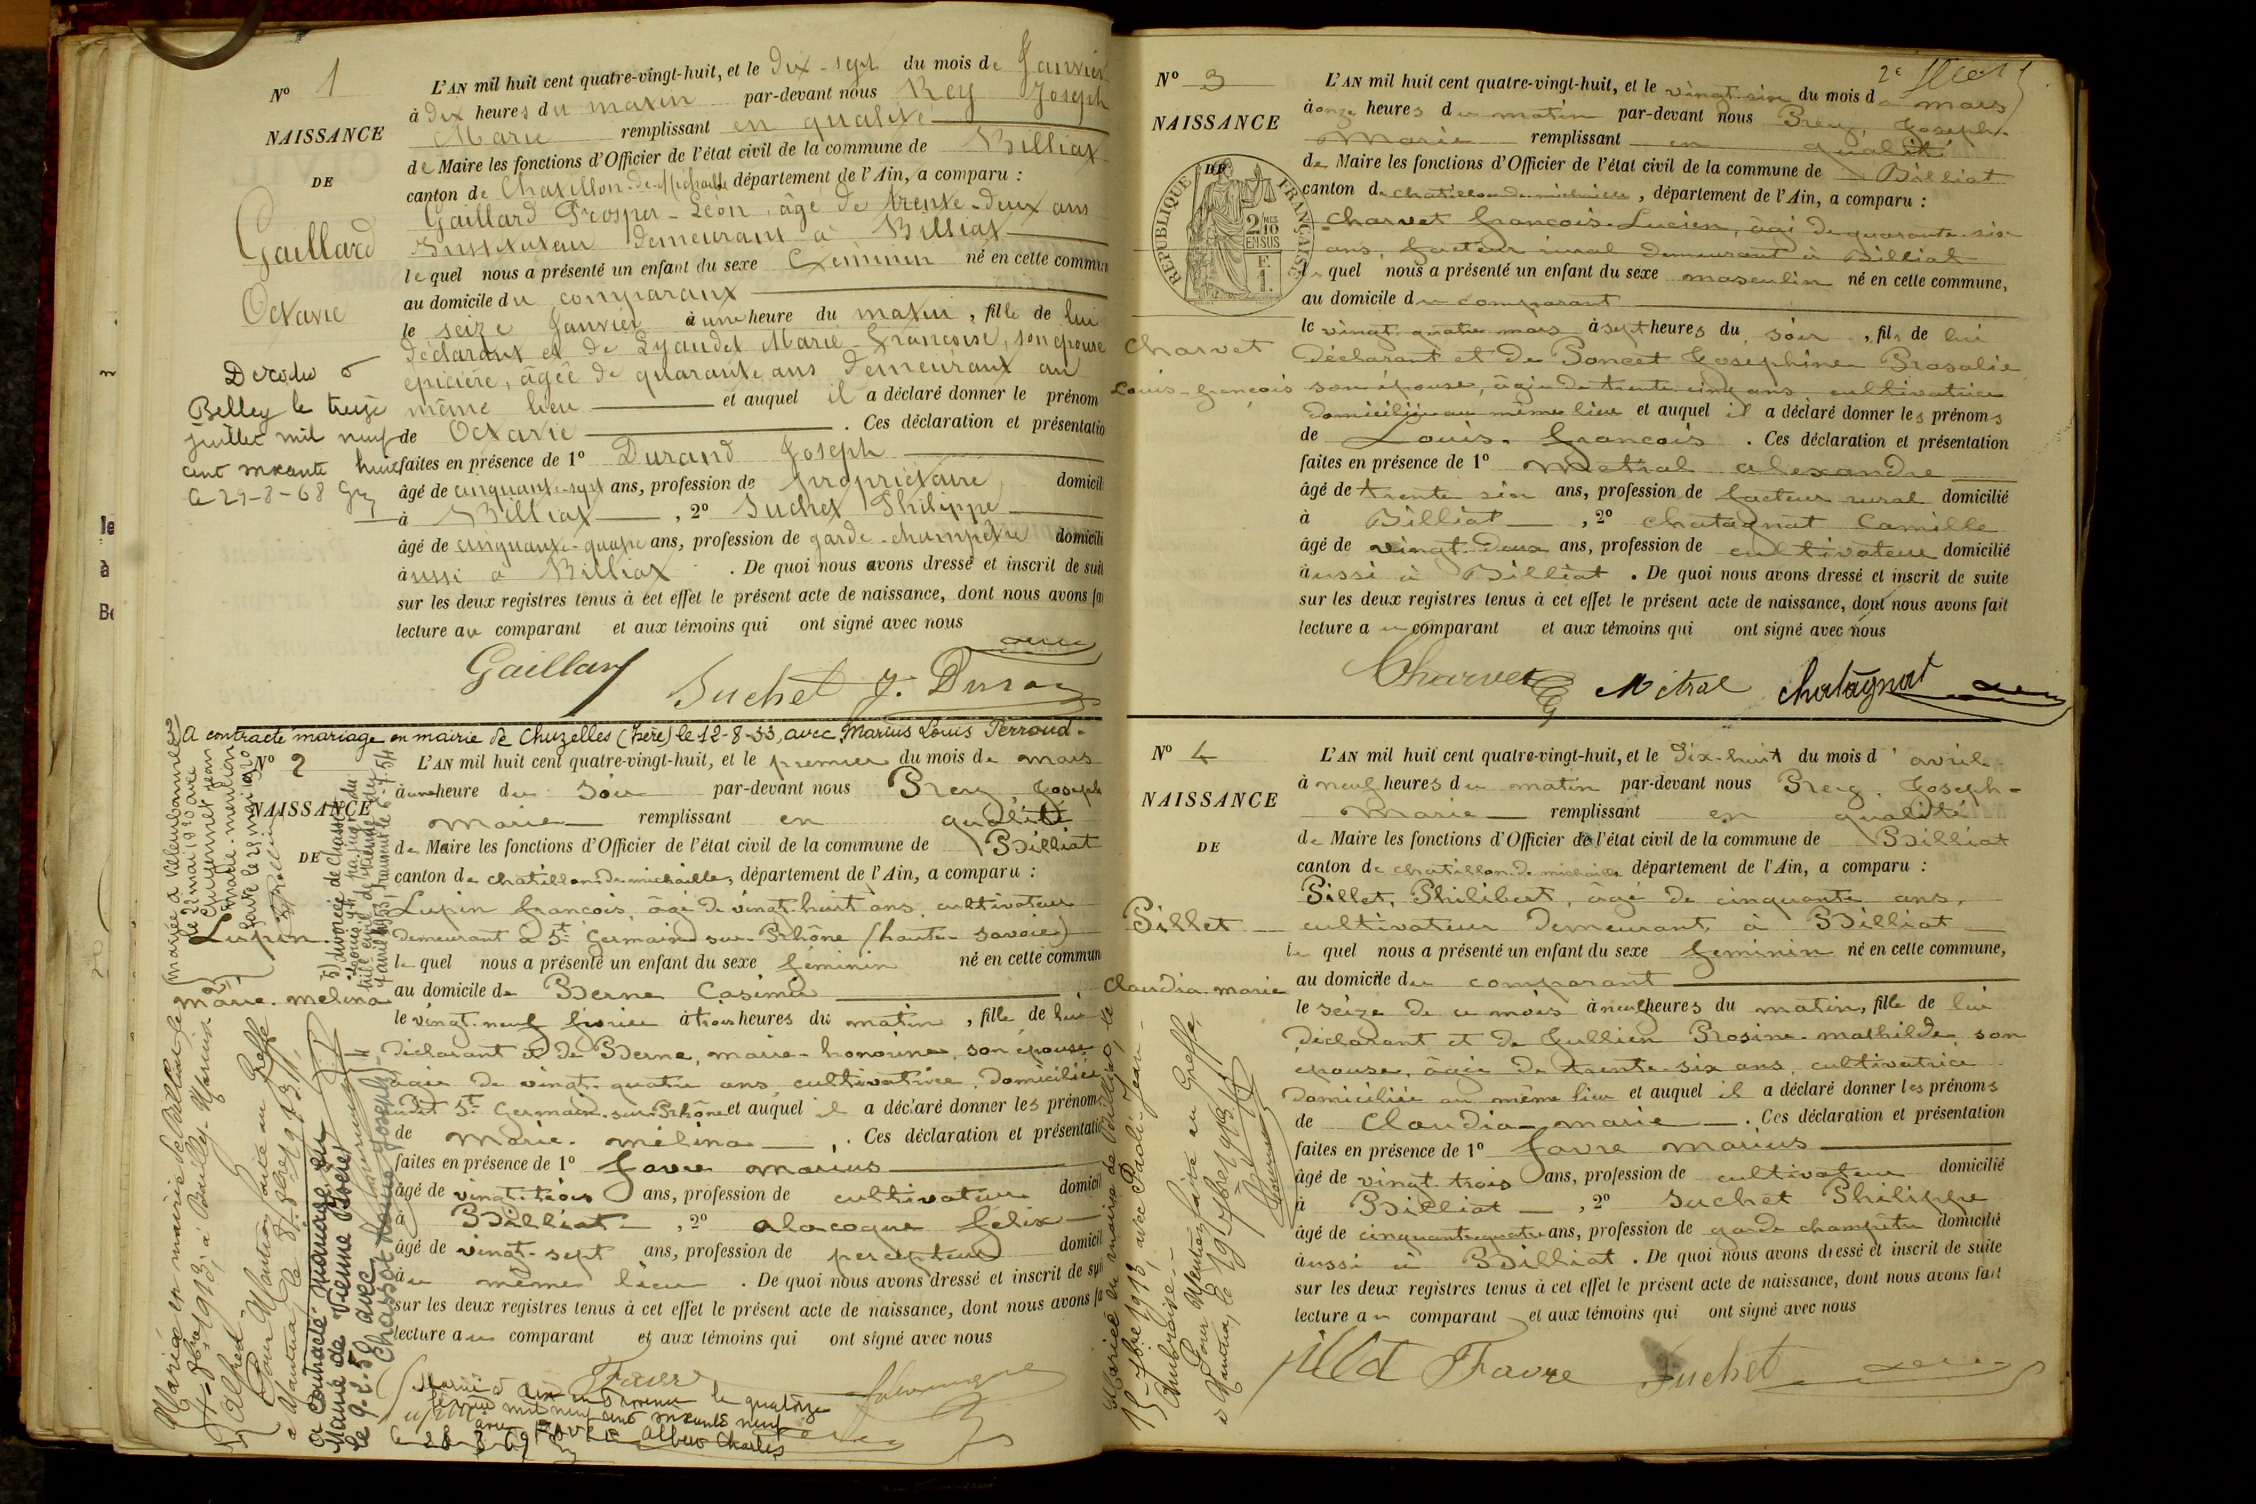 N° 1
NAISSANCE
DE
Gaillard
Octavie
Décédée à
Belley le treize
juillet mil neuf
cent soixante huit
le 29-8-68
L'AN mil huit cent quatre-vingt-huit, et le dix-sept du mois de Janvier
à dix heures du matin par-devant nous Rey Joseph
Marie remplissant en qualité
de Maire les fonctions d'Officier de l'état civil de la commune de Billiat
canton de Chatillon-de-Michaille département de l'Ain, a comparu :
Gaillard Prosper-Léon, âgé de trente-deux ans
Instituteur demeurant à Billiat
le quel nous a présenté un enfant du sexe féminin né en cette commune
au domicile du comparant
le seize Janvier à une heure du matin, fille de lui
déclarant et de Lyaudet Marie-Françoise, son épouse
épicière, âgée de quarante ans demeurant au
même lieu et auquel il a déclaré donner le prénom
de Octavie . Ces déclaration et présentatio
faites en présence de 1° Durand Joseph
âgé de cinquante-sept ans, profession de propriétaire domicil
à Billiat , 2° Suchet Philippe
âgé de cinquante-quatre ans, profession de garde-champêtre domicili
aussi à Billiat . De quoi nous avons dressé et inscrit de suit
sur les deux registres tenus à cet effet le présent acte de naissance, dont nous avons fa
lecture au comparant et aux témoins qui ont signé avec nous
Gaillard Suchet J. Durand
A contracté mariage en mairie de Chuzelles (Isère) le 12-8-33, avec Marius Louis Perroud.
N° 2
NAISSANCE
DE
Lupin
Marie-mélina
L'AN mil huit cent quatre-vingt-huit, et le premier du mois de mars
à une heure du soir par-devant nous Rey, Joseph
Marie remplissant en qualité
de Maire les fonctions d'Officier de l'état civil de la commune de Billiat
canton de chatillon de michaille, département de l'Ain, a comparu :
Lupin françois, âgé de vingt-huit ans, cultivateur
demeurant à St Germain sur Rhône (haute-savoie)
le quel nous a présenté un enfant du sexe féminin né en cette commun
au domicile de Berne Casimir
le vingt-neuf février à trois heures du matin, fille de lui
déclarant et de Berne, marie-honorine, son épouse
âgée de vingt-quatre ans cultivatrice, domiciliée
audit St Germain-sur-Rhône et auquel il a déclaré donner les prénoms
de Marie-mélina . Ces déclaration et présentatio
faites en présence de 1° favre marius
âgé de vingt-trois ans, profession de cultivateur domicil
à Billiat , 2° alacoque félix
âgé de vingt-sept ans, profession de percepteur domicil
au même lieu . De quoi nous avons dressé et inscrit de sui
sur les deux registres tenus à cet effet le présent acte de naissance, dont nous avons fa
lecture au comparant et aux témoins qui ont signé avec nous
Favre
Mariée en mairie de Billiat le
Pour Mention faite au Greffe
A contracté mariage en
Mairie de Vienne (Isère)
le 9-2-52 avec
Chassot Louis Joseph
mil neuf cent soixante neuf
avec FAVRE Albert Charles
N° 3
NAISSANCE
DE
RÉPUBLIQUE FRANÇAISE
2/10
EN SUS
F.
1.
Charvet
Louis-françois
L'AN mil huit cent quatre-vingt-huit, et le vingt-six du mois de mars
à onze heures du matin par-devant nous Rey, Joseph-
Marie remplissant en qualité
de Maire les fonctions d'Officier de l'état civil de la commune de Billiat
canton de chatillon de michaille, département de l'Ain, a comparu :
Charvet françois-Lucien, âgé de quarante-six
ans, facteur rural demeurant à Billiat
le quel nous a présenté un enfant du sexe masculin né en cette commune,
au domicile du comparant
le vingt-quatre mars à sept heures du soir, fils de lui
déclarant et de Poncet Joséphine Rosalie
son épouse, âgée de trente-cinq ans cultivatrice
domiciliée au même lieu et auquel il a déclaré donner les prénoms
de Louis-françois . Ces déclaration et présentation
faites en présence de 1° Métral alexandre
âgé de trente six ans, profession de facteur rural domicilié
à Billiat , 2° chatagnat Camille
âgé de vingt-deux ans, profession de cultivateur domicilié
aussi à Billiat . De quoi nous avons dressé et inscrit de suite
sur les deux registres tenus à cet effet le présent acte de naissance, dont nous avons fait
lecture au comparant et aux témoins qui ont signé avec nous
Charvet Métral Chatagnat
N° 4
NAISSANCE
DE
Pillet
Claudia-marie
L'AN mil huit cent quatre-vingt-huit, et le dix-huit du mois d'avril
à neuf heures du matin par-devant nous Rey, Joseph-
Marie remplissant en qualité
de Maire les fonctions d'Officier de l'état civil de la commune de Billiat
canton de chatillon de michaille département de l'Ain, a comparu :
Pillet, Philibert, âgé de cinquante ans,
cultivateur demeurant à Billiat
le quel nous a présenté un enfant du sexe féminin né en cette commune,
au domicile du comparant
le seize de ce mois à neuf heures du matin, fille de lui
déclarant et de Jullien Rosine-mathilde son
épouse, âgée de trente-six ans, cultivatrice
domiciliée au même lieu et auquel il a déclaré donner les prénoms
de Claudia-marie . Ces déclaration et présentation
faites en présence de 1° favre marius
âgé de vingt-trois ans, profession de cultivateur domicilié
à Billiat , 2° Suchet Philippe
âgé de cinquante-quatre ans, profession de garde champêtre domicilié
aussi à Billiat . De quoi nous avons dressé et inscrit de suite
sur les deux registres tenus à cet effet le présent acte de naissance, dont nous avons fait
lecture au comparant et aux témoins qui ont signé avec nous
Pillet Favre Suchet
Mariée en mairie de Billiat, le
15 7bre 1913, avec Paoli Jean-
Ambroise.
Pour Mention faite au Greffe